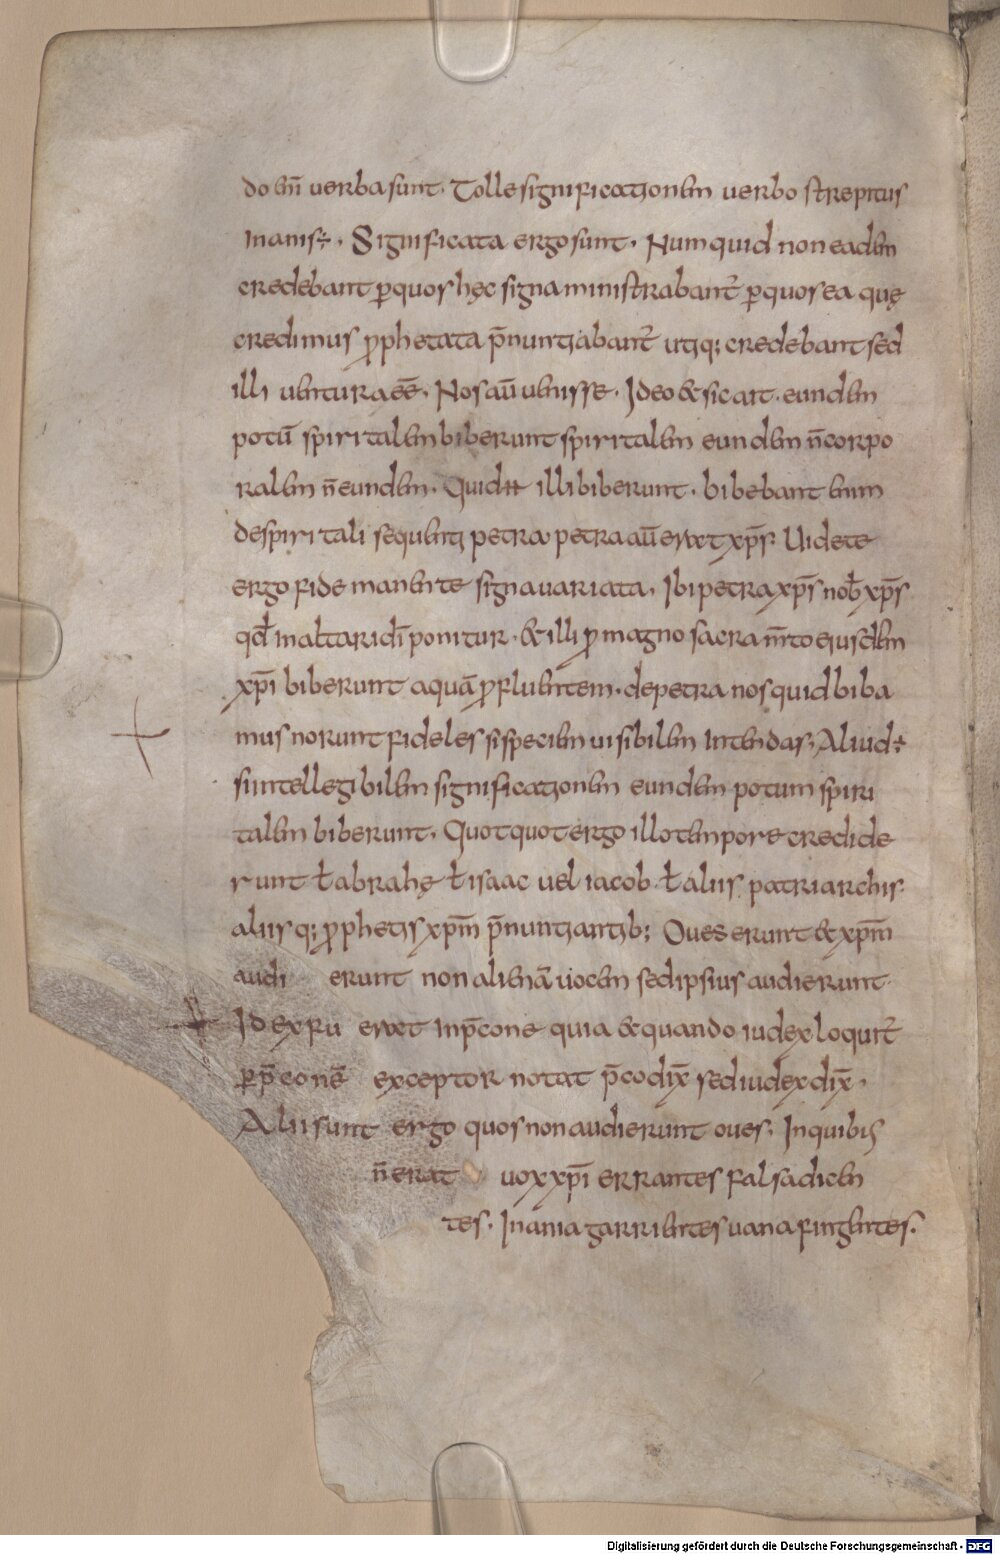 do em̄ uerba sunt. Tolle significationem uerbo strepitus
inanis÷. Significata ergo sunt. Num quid non eadem
credebant ꝑquos hęc signa ministrabant᷑ ꝑquos ea quę
credimus ꝓphetata p̄nuntiabant᷑ utiq; credebant sed
illi uentura eē̄. Nos aū uenisse. Ideo & sic ait. eundem
potū spiritalem biberunt spiritalem eundem n̄ corpo
ralem n̄ eundem. Quid ꟺ illi biberunt. bibebant enim
de spiritali sequenti petra petra aū erat xp̄s. Uidete
ergo fide manente signa uariata. Ibi petra xp̄s nob̄ xp̄s
qd̄ in altari dī ponitur. & illi ꝓ magno sacram̄to eiusdem
xp̄i biberunt aquā ꝓfluentem. de petra nos quid biba
mus norunt fideles si speciem uisibilem intendas. Aliud ÷
si intellegibilem significationem eundem potum spiri
talem biberunt. Quotquot ergo illo tempore credide
runt ƚ abrahę ƚ isaac uel iacob. ƚ aliis patriarchis.
aliisq; ꝓphetis xpm̄ p̄nuntiantib; Oues erunt & xpm̄
audi erunt non alienā uocem sed ipsius audierunt.
Iudex fu erat in p̄cone quia & quando iudex loquit᷑
ꝑ p̄conē exceptor notat p̄co dix̄ sed iudex dix̄.
Alii sunt ergo quos non audierunt oues. In quibus
n̄ erat uox xp̄i errantes falsa dicen
tes. Inania garrientes uana fingentes.
Digitalisierung gefördert durch die Deutsche Forschungsgemeinschaft - DFG